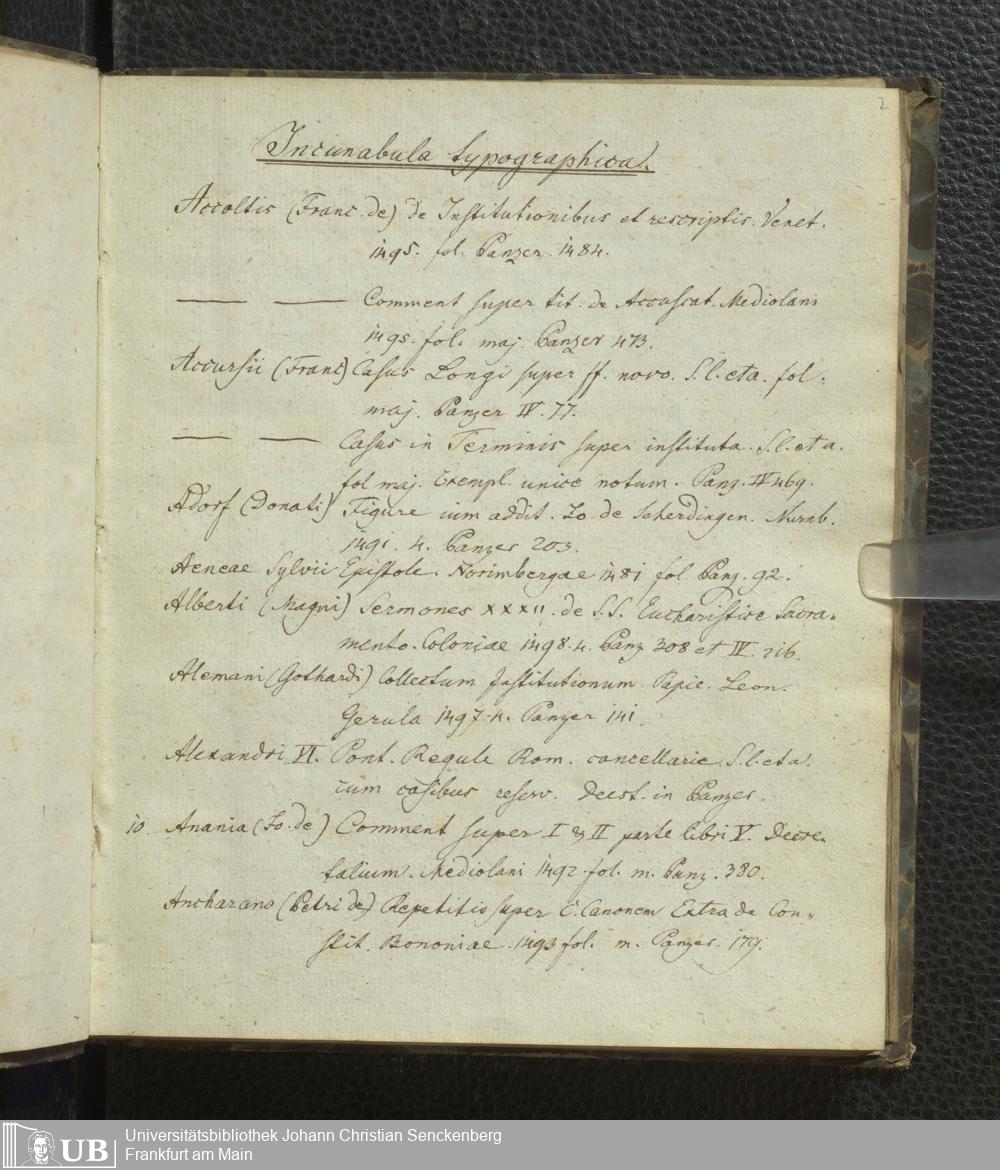 2
Incunabula typographica.
Accoltis (Franc. de) de Institutionibus et rescriptis. Venet.
1495. fol. Panzer. 1484.
Comment super tit. de Accusat. Mediolani
1495. fol. maj. Panzer 473.
Accursii (Franc) Casus Longi super ff. novo. S. l. et a. fol.
maj. Panzer IV. 77.
Casus in Terminis super instituta. S. l. et a.
fol maj. Exempl. unice notum. Panz. IV 469.
Adorf (Donati) Figure cum addit. Jo. de Scherdingen. Nurnb.
1491. 4. Panzer 203.
Aeneae Sylvii Epistole. Norimbergae 1481 fol. Panz. 92.
Alberti (Magni) Sermones XXXII. de S. S. Eucharistice Sacra-
mento. Coloniae 1498. 4. Panz 308 et IV. 216.
Alemani (Gothardi) Collectum Institutionum. Papie. Leon.
Gerula 1497. 4. Panzer 141.
Alexandri VI. Pont. Regule Rom. cancellarie. S. l. et a.
cum casibus reserv. Deest. in Panzer.
10. Anania (Jo. de) Comment super I & II parte libri V. Decre-
talium. Mediolani 1492. fol. m. Panz. 380.
Ancharano (Petri de) Repetitio super C. Canonem Extra de Con-
stit. Bononiae. 1493 fol. m. Panzer. 179.
UB
Universitätsbibliothek Johann Christian Senckenberg
Frankfurt am Main